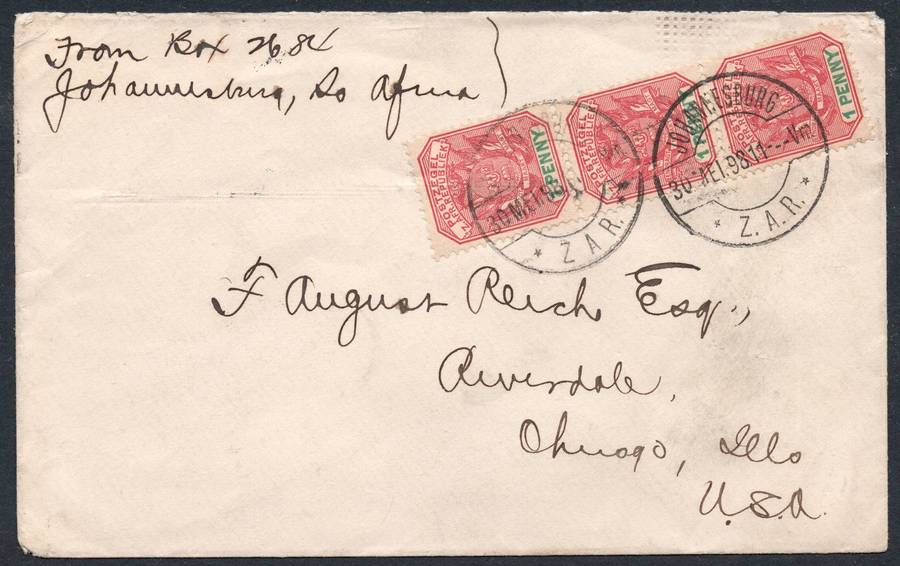 From Box 2684
Johannesburg, So Africa
POSTZEGEL
Z. AFR. REPUBLIEK
1 PENNY
POSTZEGEL
Z. AFR. REPUBLIEK
1 PENNY
POSTZEGEL
Z. AFR. REPUBLIEK
1 PENNY
30 MEI
* Z. A. R. *
JOHANNESBURG
30 MEI.98 11---Vm
* Z. A. R. *
F August Reich Esq.,
Riverdale,
Chicago, Ills
U.S.A.